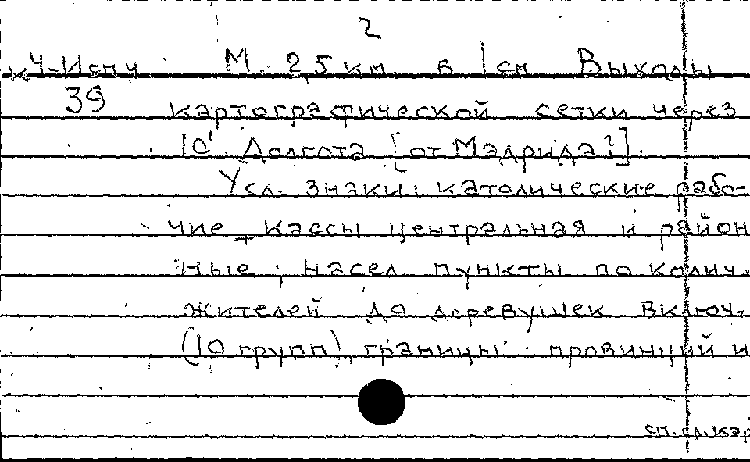 2
Ч-Испч М. 2,5 км в 1 см Выходы
39 картографической сетки через
10' Долгота [от Мадрида?]
Усл. знаки: католические рабо-
чие кассы центральная и район
ные; насел пункты по колич.
жителей до деревушек включ.
(10 групп), границы провинций и
см. сл. кар